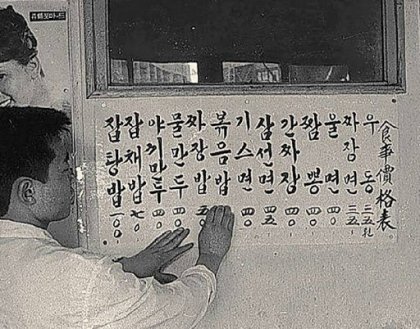 食事價格表
우동 三五원
짜장면 三五
울면 四〇
짬뽕 四〇
간짜장 四〇
삼선면 四五
기스면 四〇
볶음밥
짜장밥 五〇
물만두 四〇
야끼만두 四〇
잡채밥 七〇
잡탕밥 一〇〇